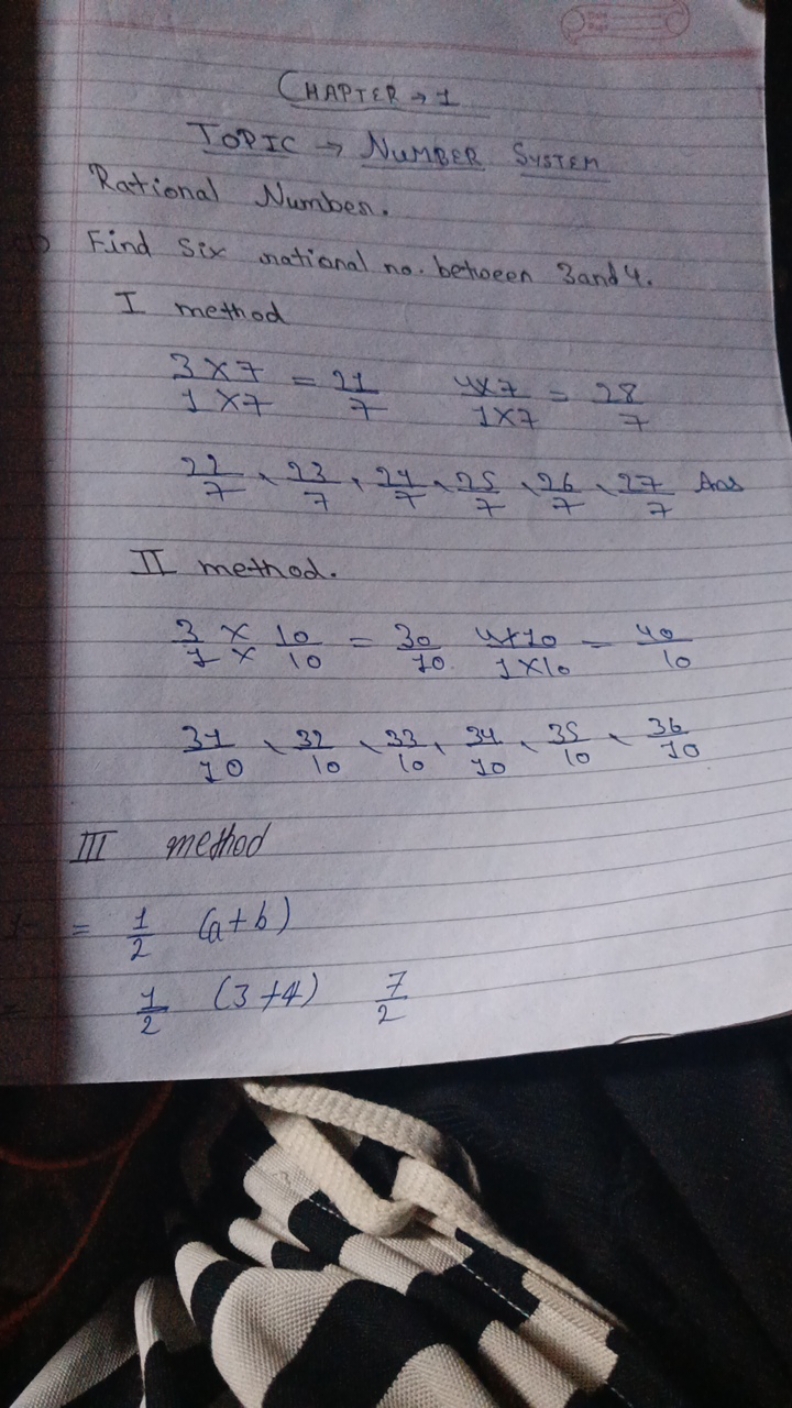 CHAPTER → 1
TOPIC → NUMBER SYSTEM
Rational Number.
Find six rational no. between 3 and 4.
I method
3×7/1×7 = 21/7 4×7/1×7 = 28/7
22/7, 23/7, 24/7, 25/7, 26/7, 27/7 Ans
II method.
3/1 × × 10/10 = 30/10 4×10/1×10 = 40/10
31/10, 32/10, 33/10, 34/10, 35/10, 36/10
III method
= 1/2 (a+b)
= 1/2 (3+4) 7/2